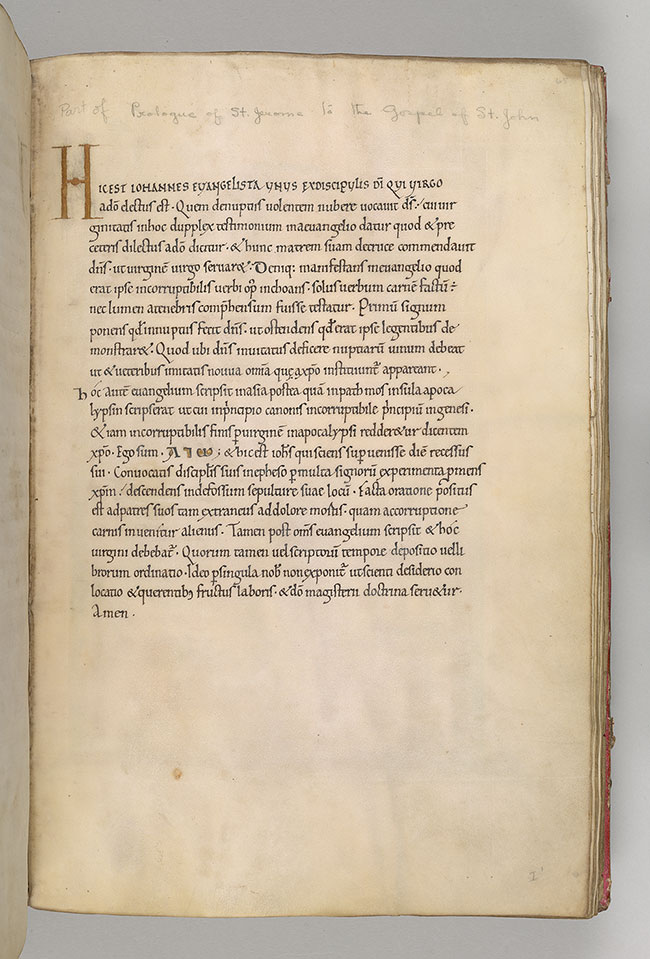 Part of Prologue of St. Jerome to the Gospel of St. John
HIC EST IOHANNES EVANGELISTA VNVS EX DISCIPVLIS DI QVI VIRGO
a dō electus est. Quem de nuptiis volentem nubere vocavit ds. cui vir
ginitatis in hoc dupplex testimonium in aevangelio datur quod & pre
ceteris dilectus a dō dicitur. & huic matrem suam de cruce commendavit
dn̄s. ut virginē virgo servar&. Deniq: manifestans in evangelio quod
erat ipse incorruptibilis verbi op̄ inchoans. solus verbum carnē factū
nec lumen a tenebris comp̄hensum fuisse testatur. Primū signum
ponens qd in nuptiis fecit dn̄s. ut ostendens qd erat ipse legentibus de
monstrar&. Quod ubi dn̄s invitatus deficere nuptiarū vinum debeat
ut & veteribus inmutatis nouva omīa quę a xp̄o instituunt̄ appareant.
hoc autē euangelium scripsit in asia postea quā in pathmos insula apoca
lypsin scripserat ut cui in p̄ncipio canonis incorruptibile p̄ncipiū in genesi.
& iam incorruptibilis finis p virginē in apocalypsi redder&ur dicentem
xp̄o. Ego sum. A 7 ω ; & hic est ioh̄s qui sciens supvenisse diē recessus
sui. Convocatis discipl̄is suis in epheso p multa signorū experimenta p̄mens
xp̄m descendens in defossum sepulture suae locū. Facta oratione p̄ositus
est ad patres suos tam extraneus a dolore mortis. quam a corruptione
carnis invenitur alienus. Tamen post om̄s evangelium scripsit & hoc
virgini debebat̄. Quorum tamen vel scriptorū tempore depositio vel li
brorum ordinatio. Ideo p singula nob̄ non exponit̄ ut scienti desiderio con
locatio & querentib; fructus laboris. & dō magisterii doctrina serv&ur.
Amen.